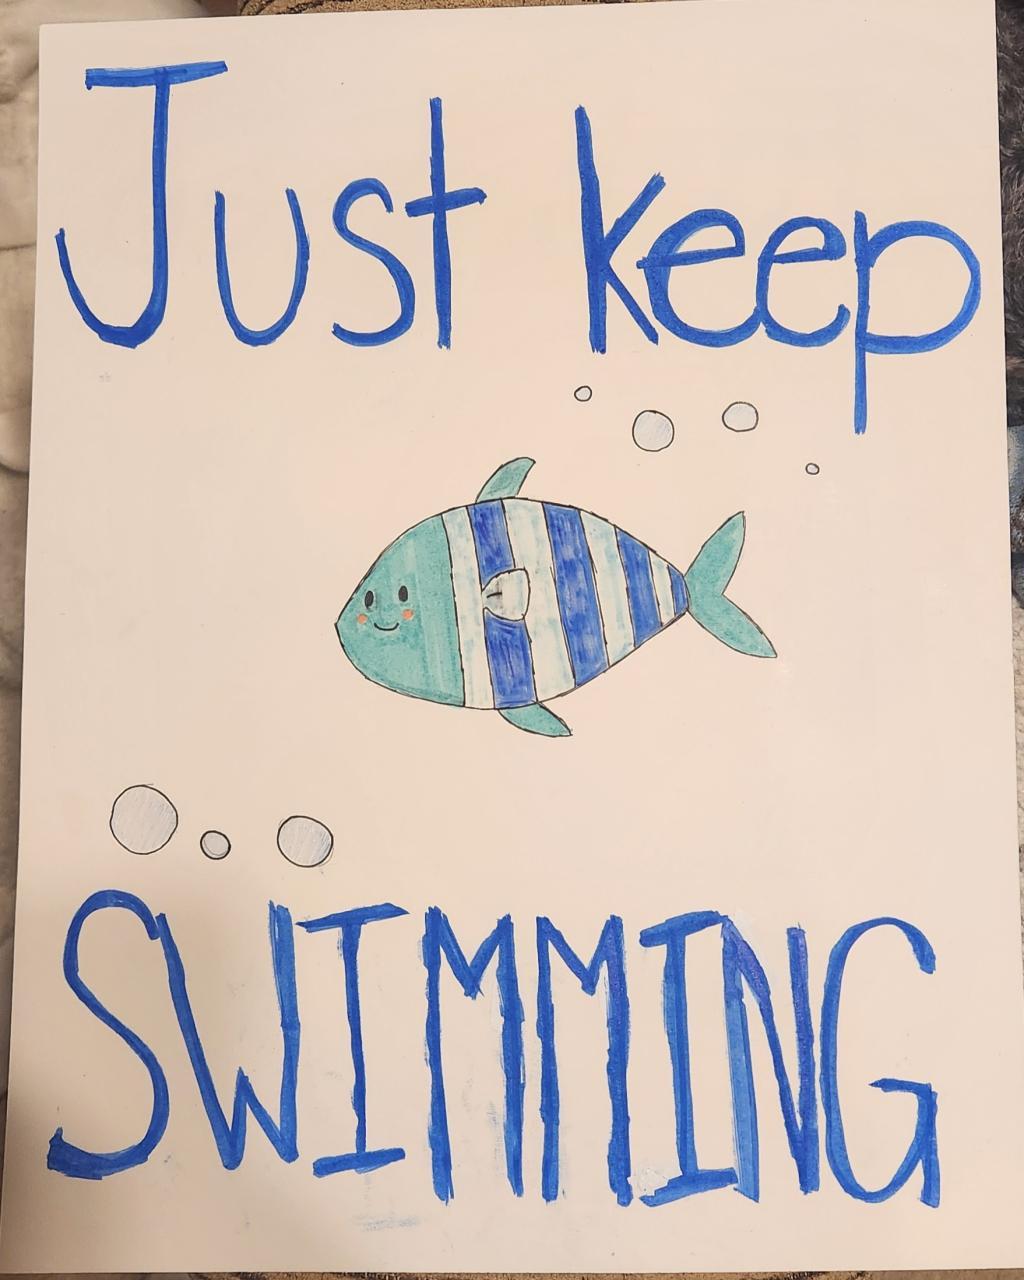 Just keep
SWIMMING